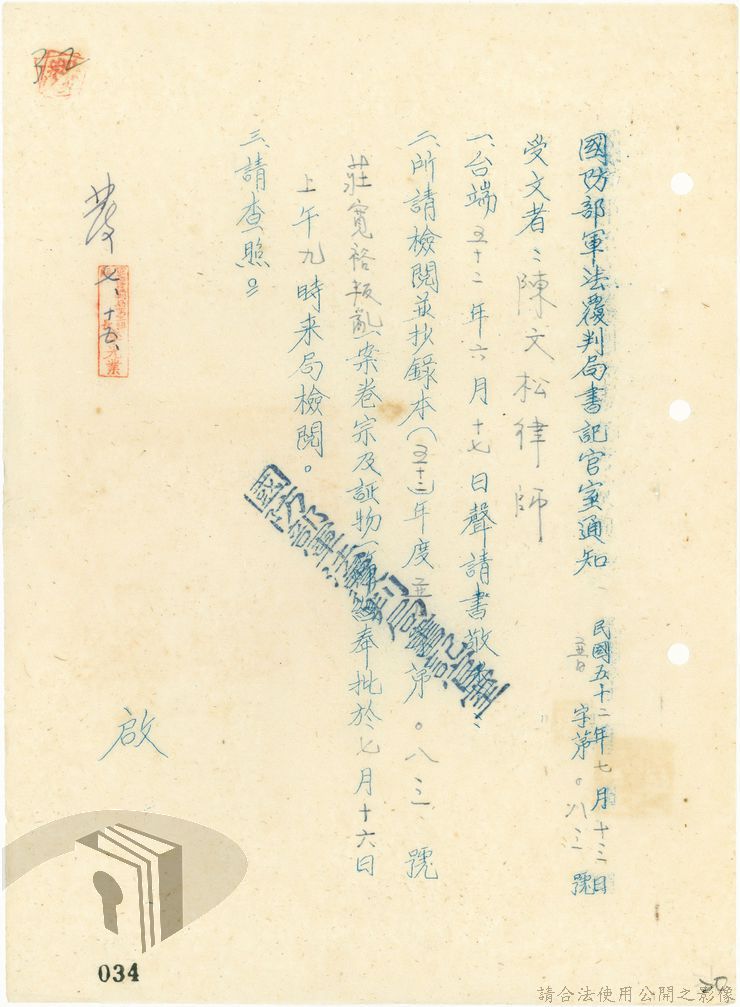 國防部軍法覆判局書記官室通知
民國五十二年七月十三日
普 字第〇八三號
受文者：陳文松律師
一、台端五十二年六月十七日聲請書敬悉：
二、所請檢閱並抄錄本(五十二)年度 第〇八三號
莊寬裕叛亂一案卷宗及証物一節經奉批於七月十六日
上午九時来局檢閱。
三、請查照。
啟
國防部軍法覆判局書記官室
發
七、十五、
034
請合法使用公開之影像